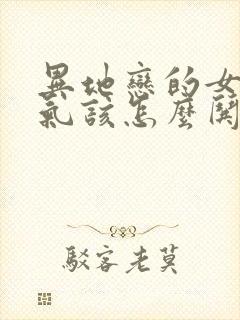 異地戀的女
氣該怎麼開
駁客老莫